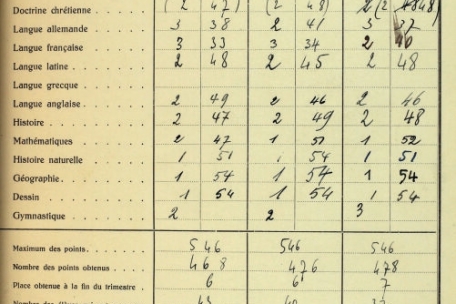 Doctrine chrétienne . . . . (2 47) (2 48) 2 (2 4848)
Langue allemande . . . . 3 38 2 41 3 37
Langue française . . . . 3 33 3 34 2 40
Langue latine . . . . . 2 48 2 45 2 48
Langue grecque . . . . .
Langue anglaise . . . . . 2 49 2 46 2 46
Histoire . . . . . . . 2 47 2 49 2 48
Mathématiques . . . . . 2 47 1 51 1 52
Histoire naturelle . . . . 1 51 1 54 1 51
Géographie . . . . . . 1 54 1 54 1 54
Dessin . . . . . . . 1 54 1 54 1 54
Gymnastique . . . . . . 2 2 3
Maximum des points . . . . . 546 546 546
Nombre des points obtenus . . . . 468 476 478
Place obtenue à la fin du trimestre . 6 6 7